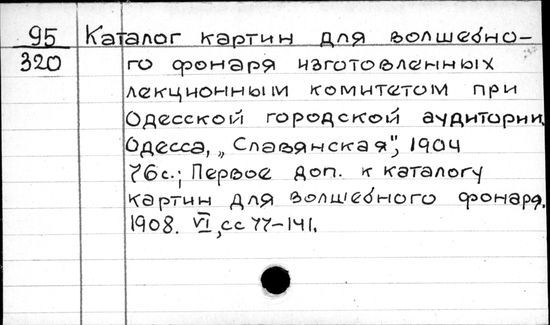 95 Каталог картин для волшебно-
320 го фонаря изготовленных
лекционным комитетом при
Одесской городской аудитории.
Одесса, „Славянская", 1904
76с.; Первое доп. к каталогу
картин для волшебного фонаря.
1908. VI, сс 77-141.